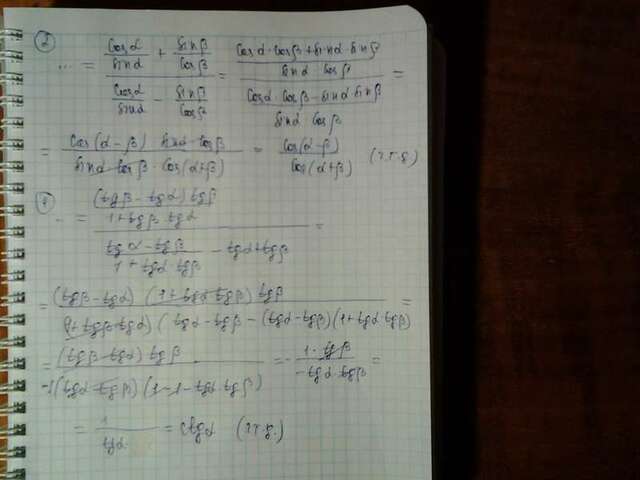 2
... = (cosα/sinα + sinβ/cosβ) / (cosα/sinα - sinβ/cosβ) = ((cosα·cosβ + sinα·sinβ)/(sinα·cosβ)) / ((cosα·cosβ - sinα·sinβ)/(sinα cosβ)) =
= (cos(α-β) sinα·cosβ) / (sinα·cosβ·cos(α+β)) = cos(α-β) / cos(α+β) (ч.т.д.)
... = ((tgβ - tgα) tgβ / (1 + tgβ tgα)) / ((tgα - tgβ)/(1 + tgα tgβ) - tgα + tgβ) =
= (tgβ - tgα)(1 + tgα tgβ) tgβ / (1 + tgβ tgα)(tgα - tgβ - (tgα - tgβ)(1 + tgα tgβ) =
= (tgβ - tgα) tgβ / -1(tgα tgβ)(1 - 1 - tgα tgβ) = - 1·tgβ / -tgα·tgβ =
= 1/tgα = ctgα (ч.т.д.)